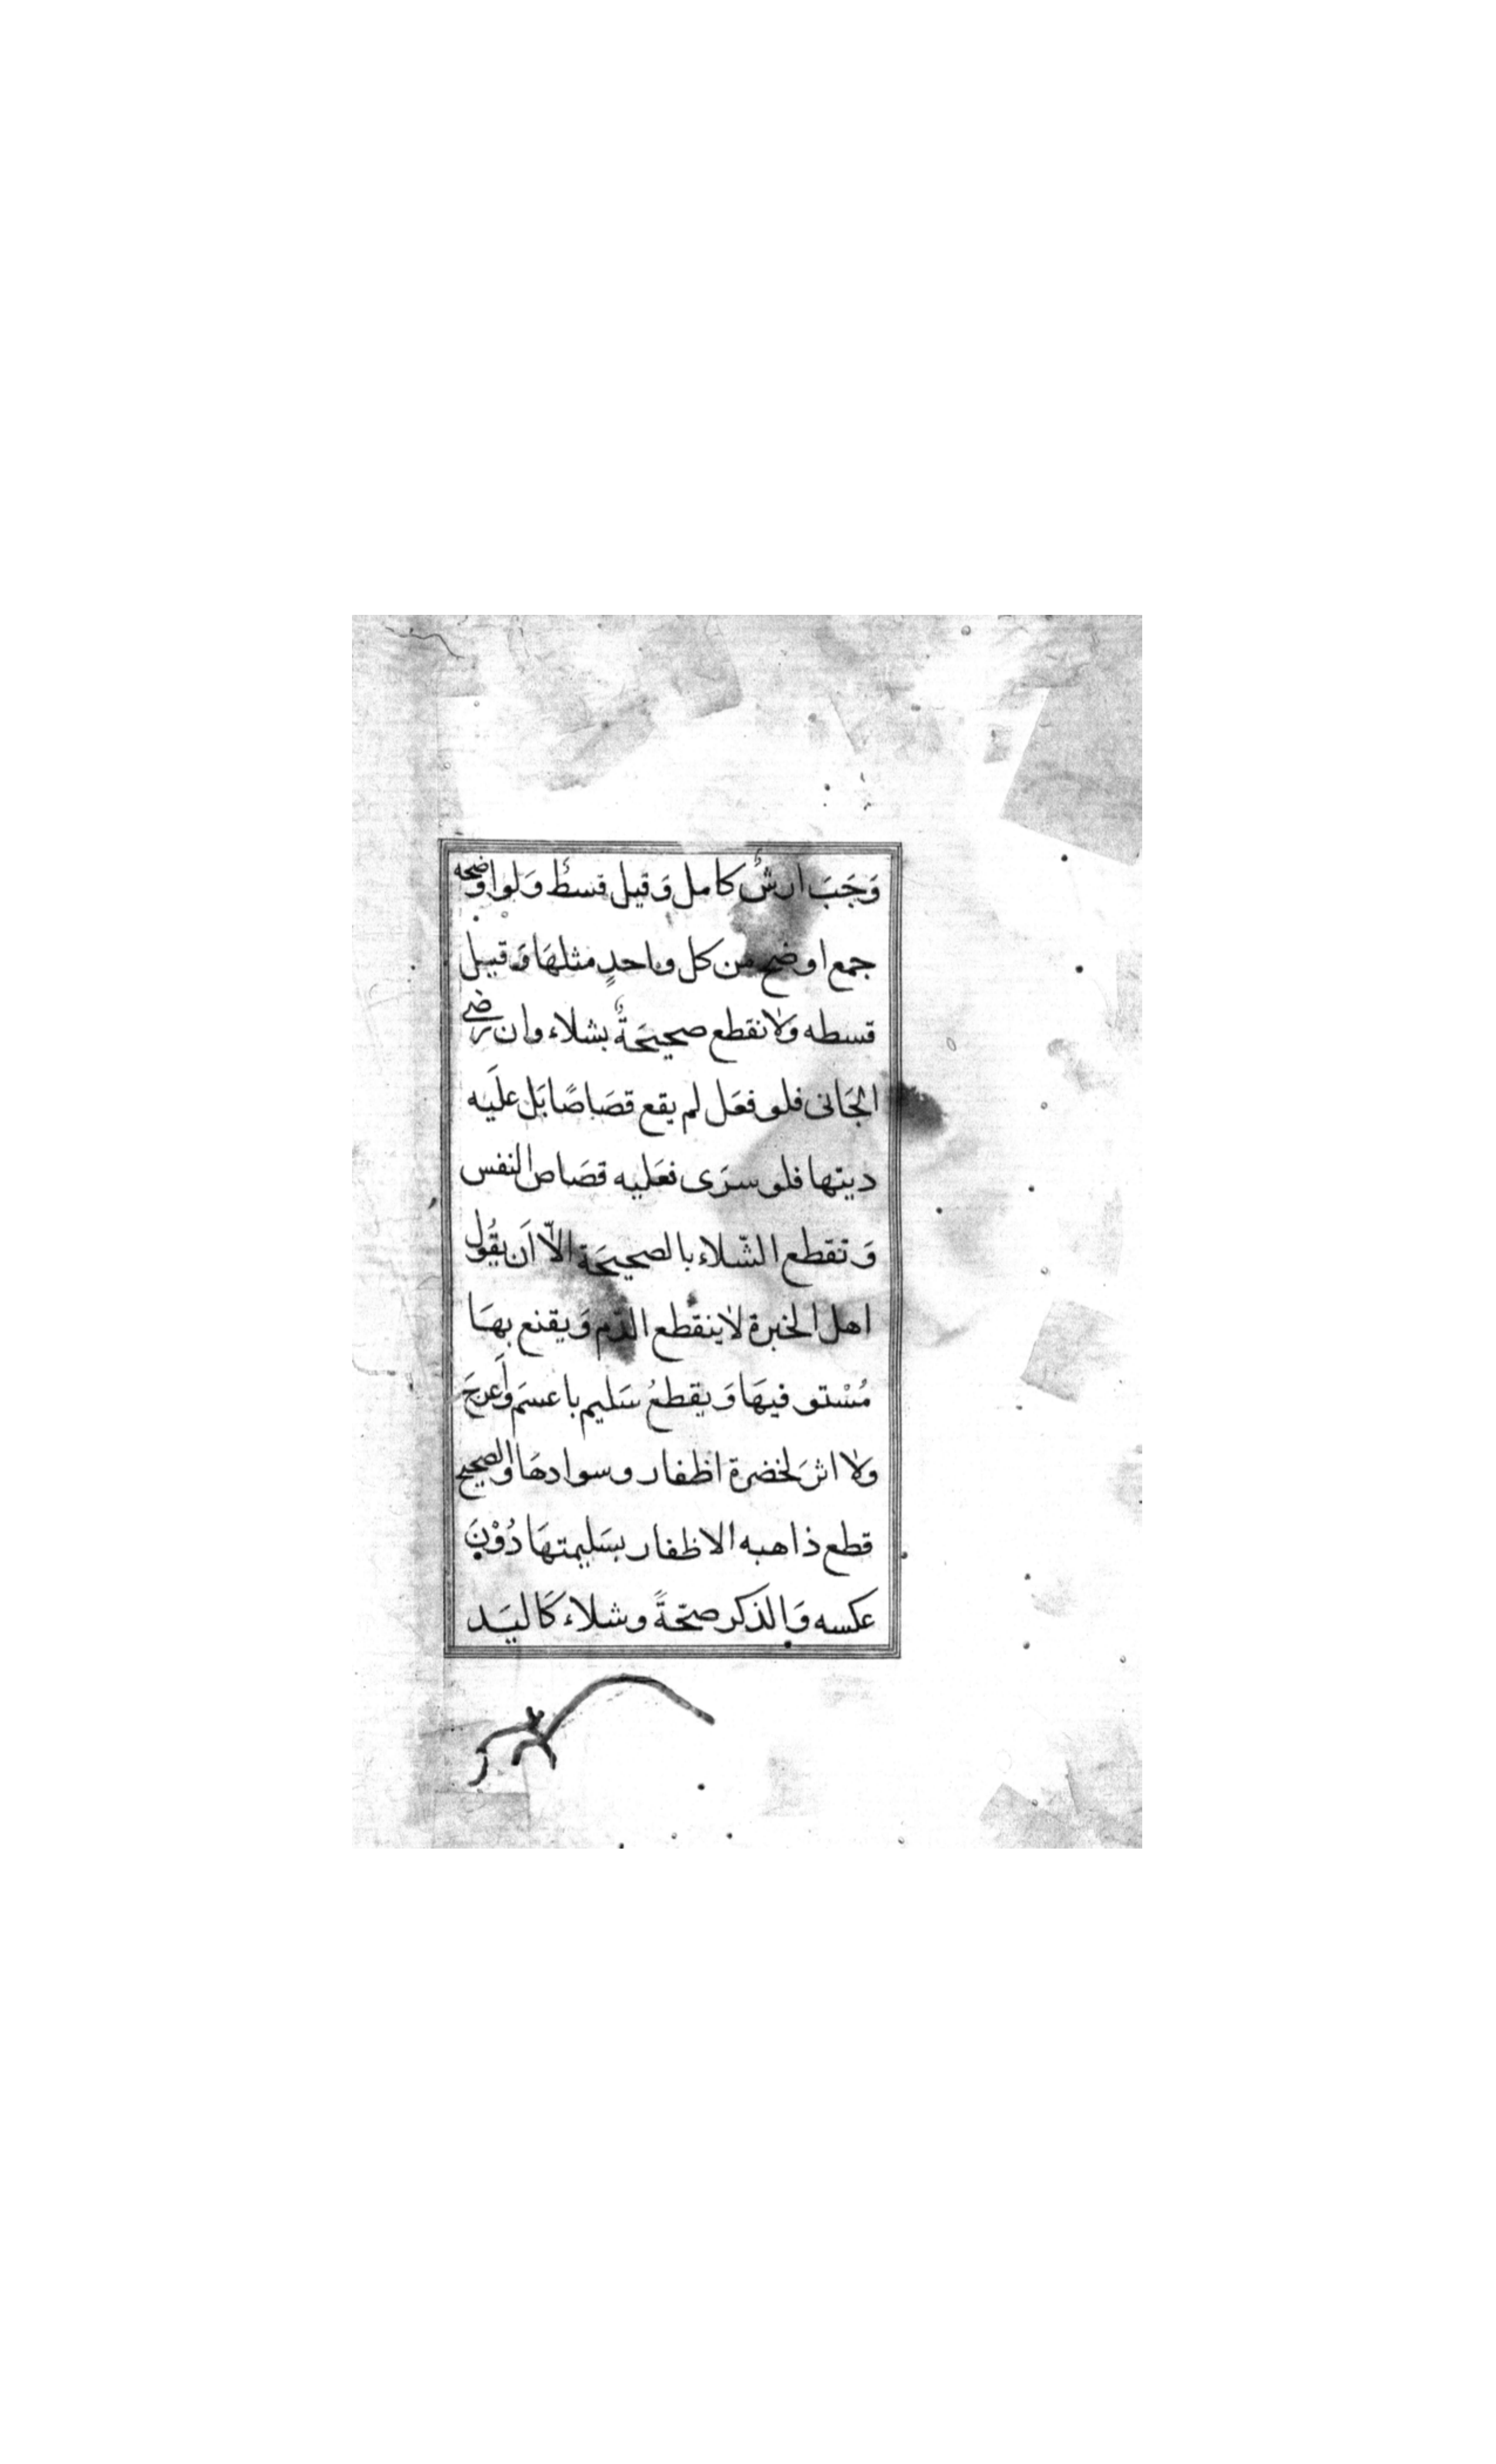 وَجَبَ ارشٌ كامل وَقيل قسطٌ وَلواوضحه
جمع اوضح من كل واحدٍ مثلهَا وَقيل
قسطه وَلا تقطع صحيحَةٌ بشلاء وان رضى
الجَانى فلو فعَل لم يقع قصَاصًا بَل علَيه
ديتها فلو سرَى فعَليه قصَاص النفس
وَتقطع الشّلاء بالصحيحَة الاّ اَن يقُول
اهل الخبرة لا ينقطع الدّم وَيقنع بهَا
مُسْتوفيهَا وَيقطعُ سَليم باعسَم وَاَعرجَ
ولا اثرَ لخضرة اظفار وسوادهَا والصحيح
قطع ذاهبه الاظفار بسَليمتهَا دُوْنَ
عكسه وَالذكر صحّةً وشلاء كَاليَد